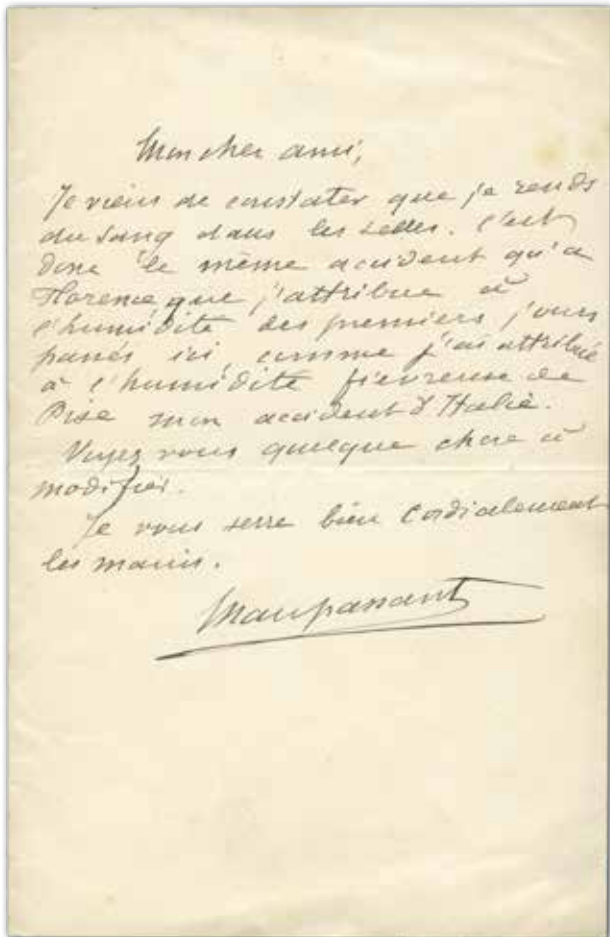 Mon cher ami,
Je viens de constater que je rends
du sang dans les selles. C'est
donc le même accident qu'à
Florence, que j'attribue à
l'humidité des premiers jours
passés ici, comme j'ai attribué
à l'humidité fiévreuse de
Pise mon accident d'Italie.
Voyez vous quelque chose à
modifier.
Je vous serre bien cordialement
les mains.
Maupassant